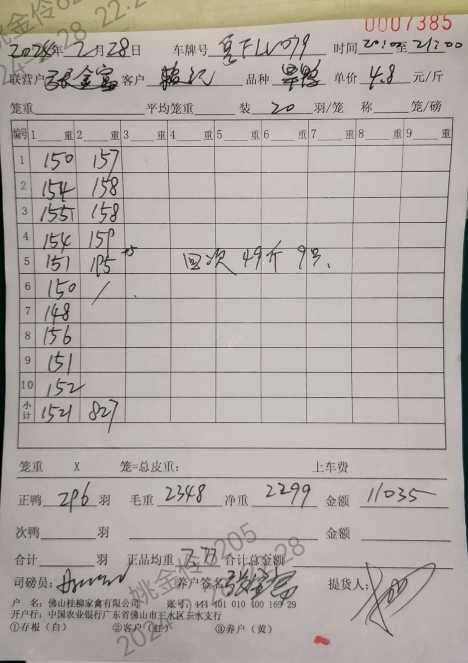 0007385
2024年2月28日 车牌号 粤FLV079 时间 20:10至21:00
联营户 张金富 客户 品种 旱鸭 单价 4.8 元/斤
笼重 平均笼重 装 20 羽/笼 称 笼/磅
编号 1 重 2 重 3 重 4 重 5 重 6 重 7 重 8 重 9 重
1 150 157
2 154 158
3 155 158
4 154 159
5 151 195 回次 49斤 9只.
6 150 /
7 148
8 156
9 151
10 152
小计 1521 827
笼重 X 笼=总皮重: 上车费
正鸭 296 羽 毛重 2348 净重 2299 金额 11035
次鸭 羽 金额
合计 羽 正品均重 7.77 合计总金额
司磅员: 养户签名 张金富 提货人:
户 名: 佛山桂柳家禽有限公司 账号: 444 401 010 400 169 29
开户行: 中国农业银行广东省佛山市三水区乐水支行
①存根(白) ②客户(红) ③养户(黄)
姚金伶6205